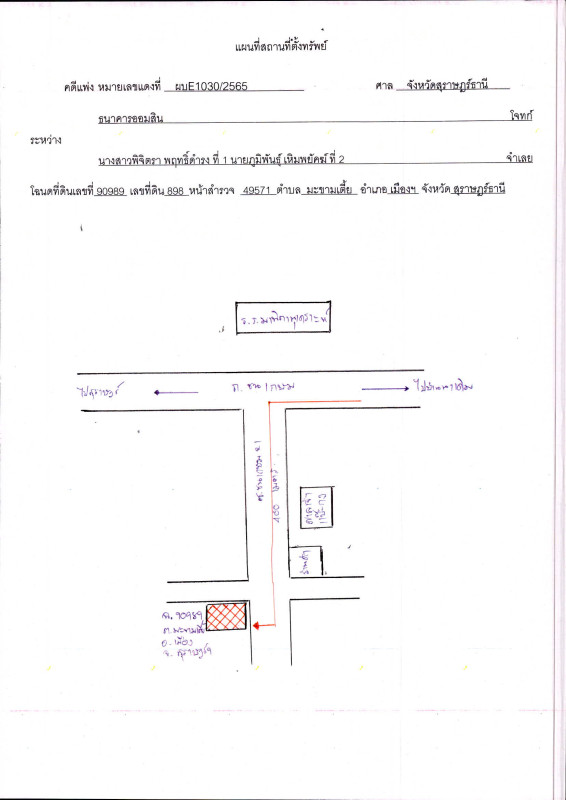 แผนที่สถานที่ตั้งทรัพย์
คดีแพ่ง หมายเลขแดงที่ ผบE1030/2565 ศาล จังหวัดสุราษฎร์ธานี
ธนาคารออมสิน โจทก์
ระหว่าง
นางสาวพิจิตรา พฤทธิ์ดำรง ที่ 1 นายภูมิพันธุ์ เหิมพยัคฆ์ ที่ 2 จำเลย
โฉนดที่ดินเลขที่ 90989 เลขที่ดิน 898 หน้าสำรวจ 49571 ตำบล มะขามเตี้ย อำเภอ เมืองฯ จังหวัด สุราษฎร์ธานี
ร.ร.
ถ. ชนเกษม
ซ.ชนเกษม 21
400 เมตร
ศาลเจ้า
ร้านค้า
ฉ. 90989
ต. มะขามเตี้ย
อ. เมือง
จ. สุราษฎร์ฯ